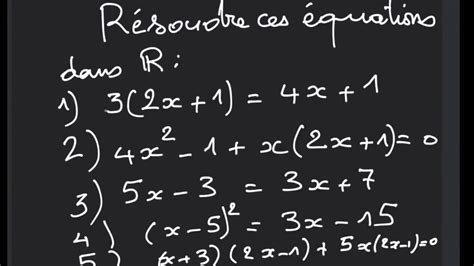 Résoudre ces équations
dans R :
1) 3(2x+1) = 4x+1
2) 4x² - 1 + x(2x+1) = 0
3) 5x - 3 = 3x + 7
4) (x-5)² = 3x - 15
5) (x+3)(2x-1) + 5x(2x-1) = 0